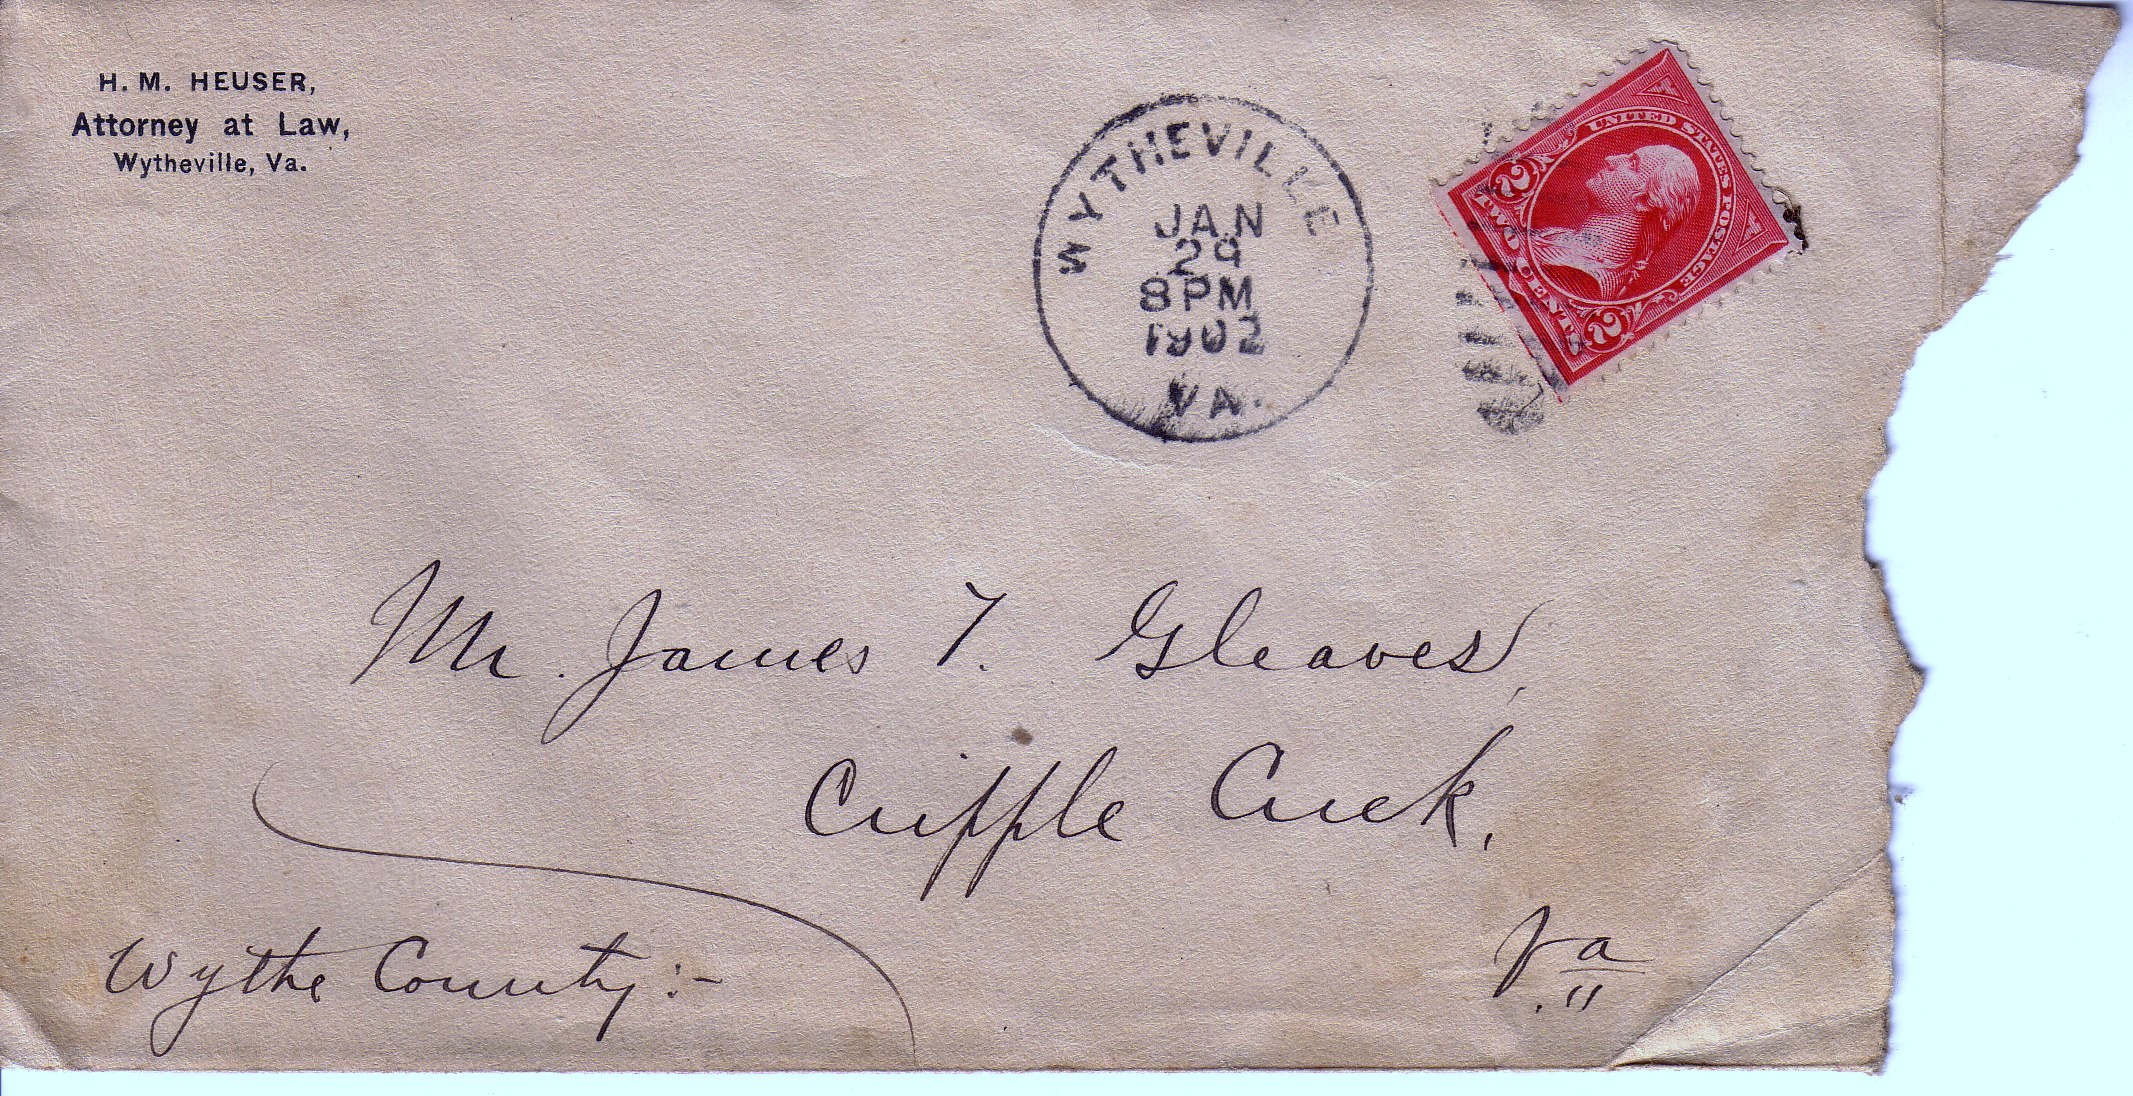 H. M. HEUSER,
Attorney at Law,
Wytheville, Va.
WYTHEVILLE
JAN
29
8PM
1902
VA.
UNITED STATES POSTAGE
2 TWO CENTS 2
Mr. James T. Gleaves,
Cripple Creek,
Va
Wythe County:-